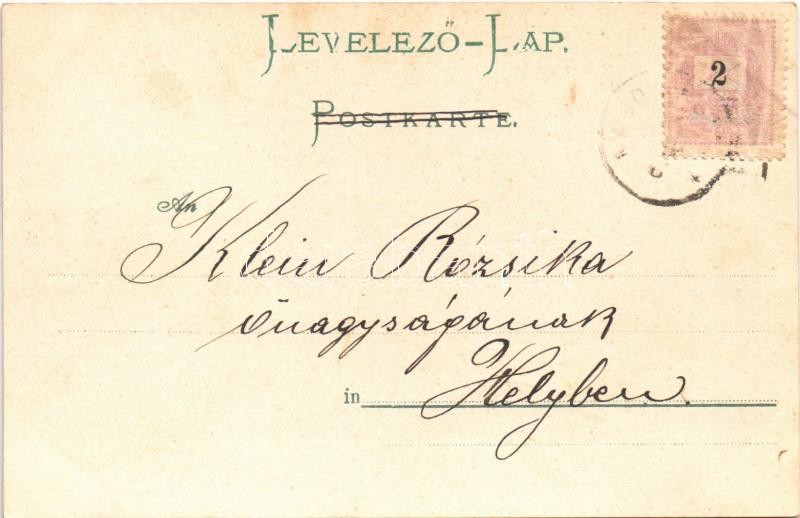 LEVELEZŐ-LAP.
2
POSTKARTE.
An
Klein Rózsika
őnagyságának
in Helyben.